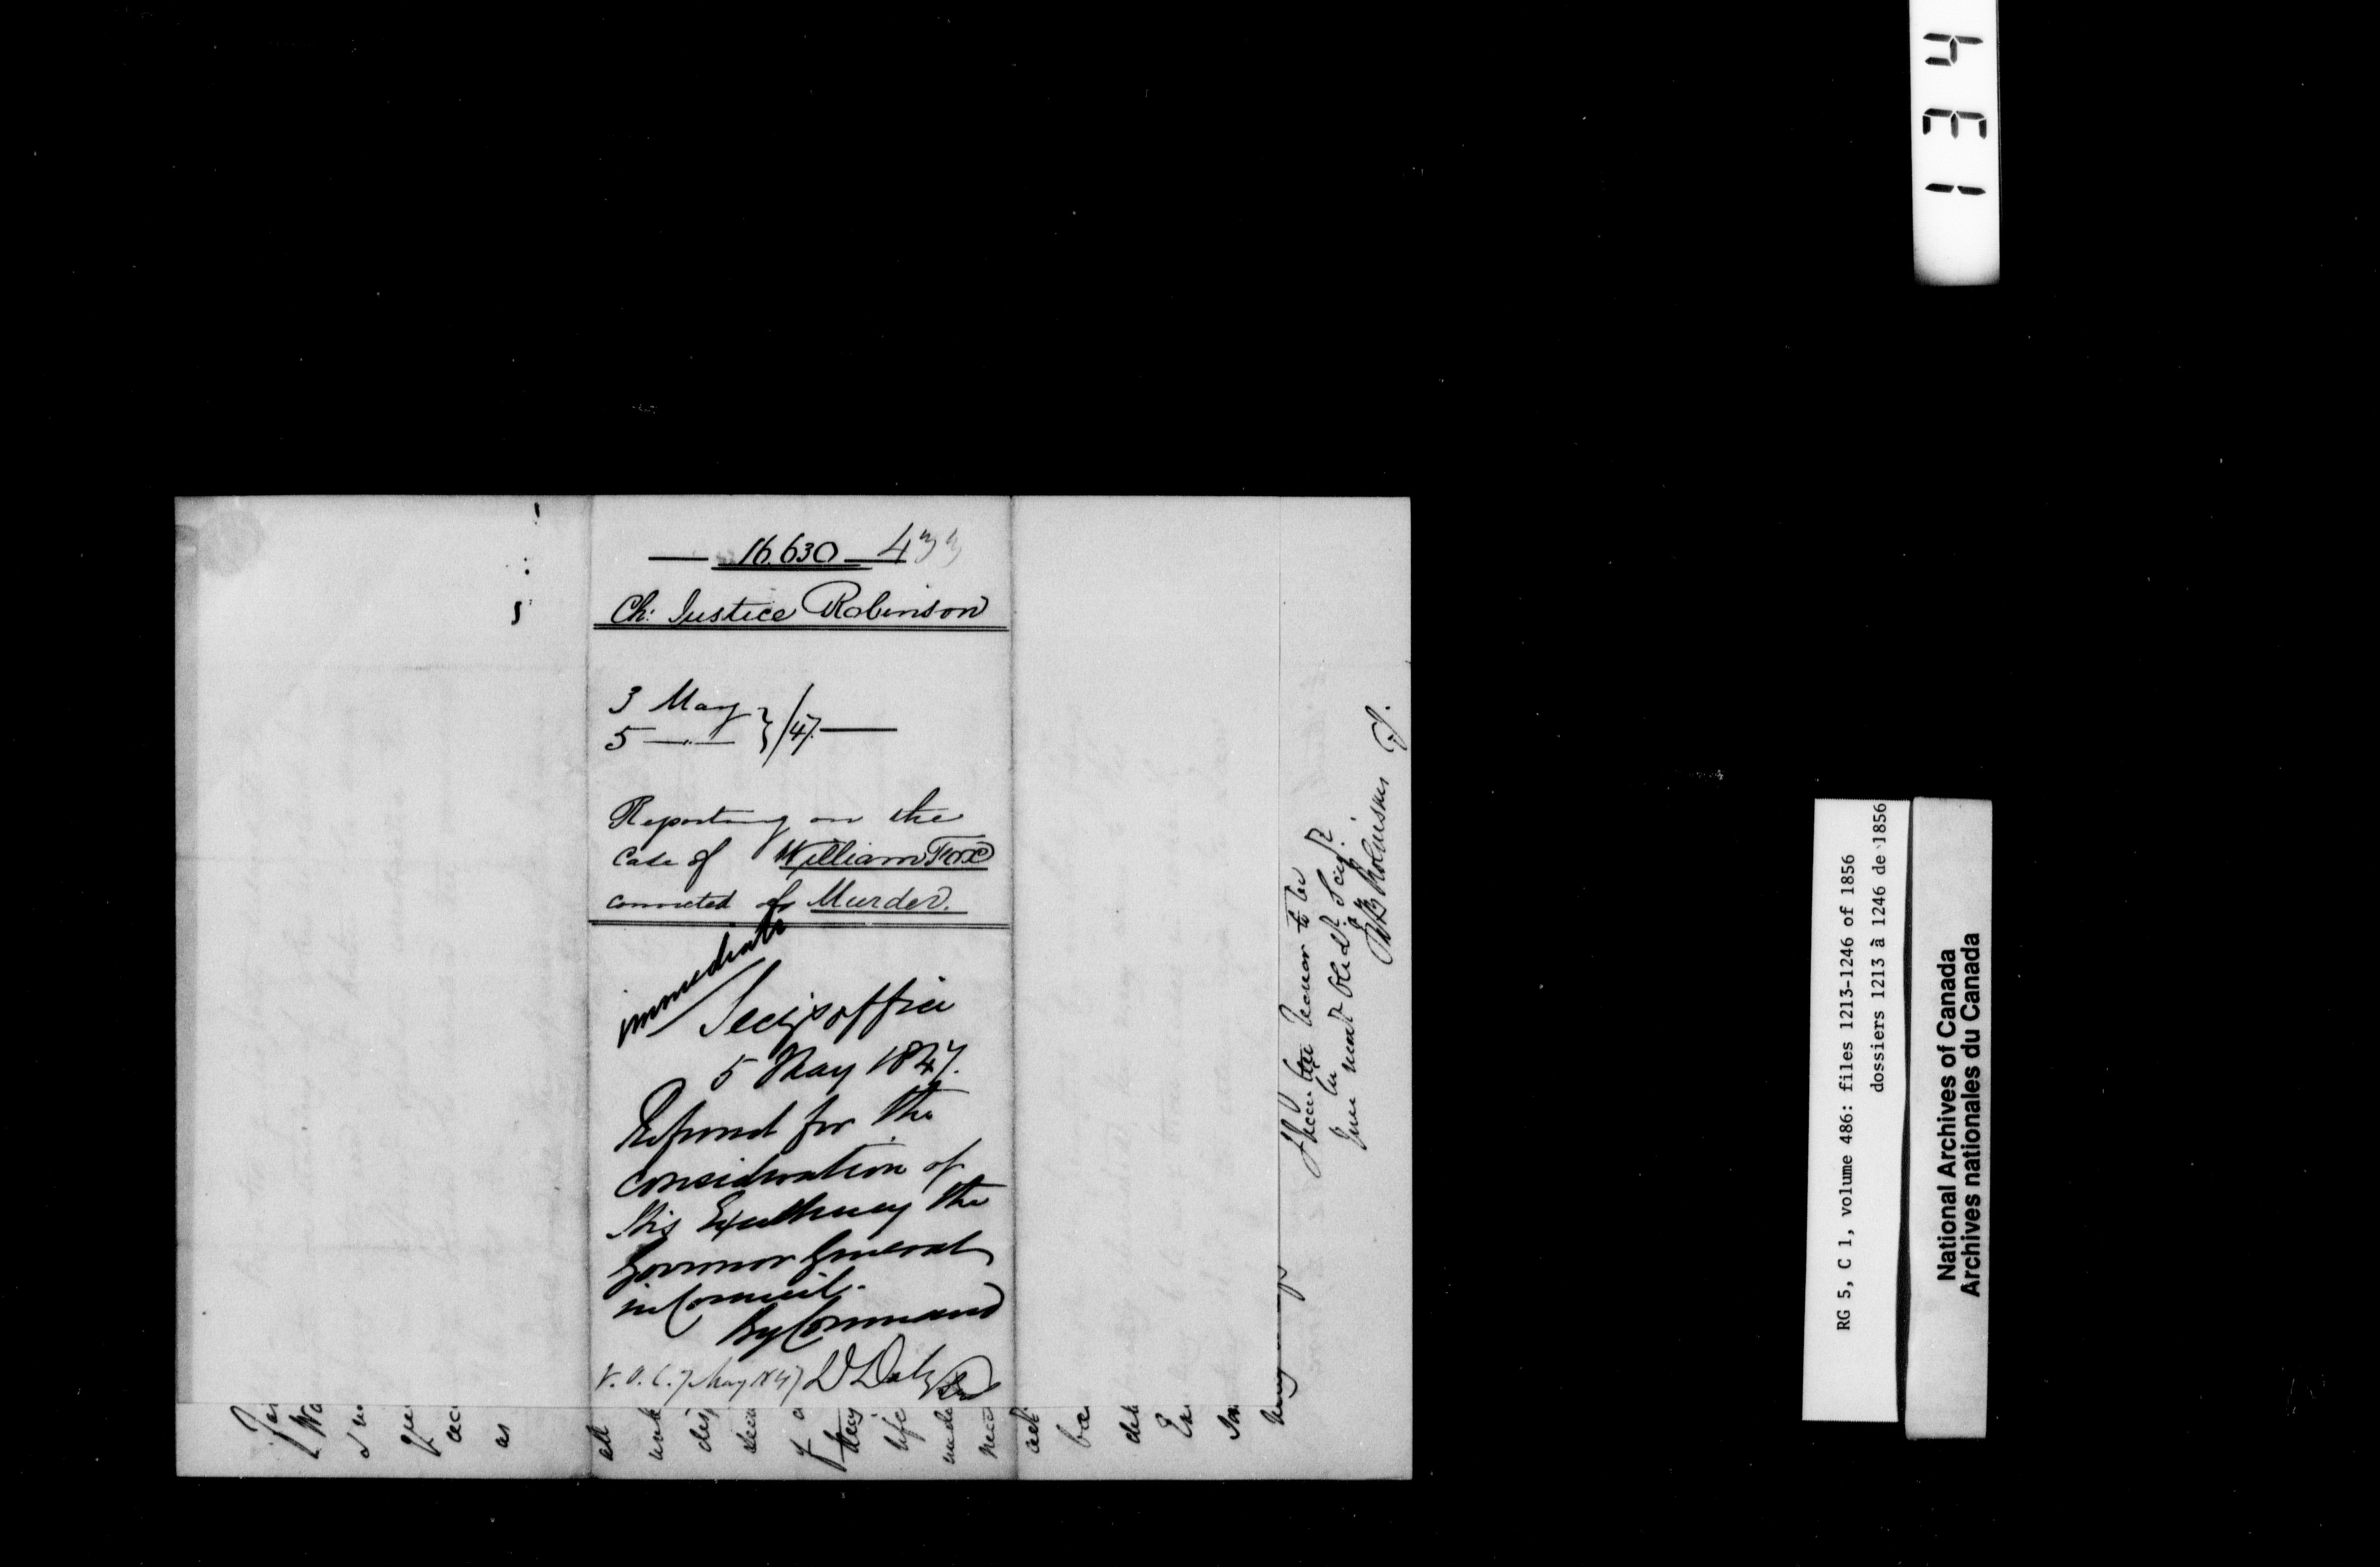 16.630 4
Ch: Justice Robinson
3 May } /47.
5 —"—
Reporting on the
Case of William Fox
convicted of Murder.
immediate
Secy's office
5 May 1847.
Referred for the
consideration of
His Excellency the
Governor General
in Council.
By Command
D Daly
7 May 1847
I have the honor to be
Sir
Your most obedt. Servt.
J B Robinson CJ.
all
as
life
134
RG 5, C 1, volume 486: files 1213-1246 of 1856
dossiers 1213 à 1246 de 1856
National Archives of Canada
Archives nationales du Canada